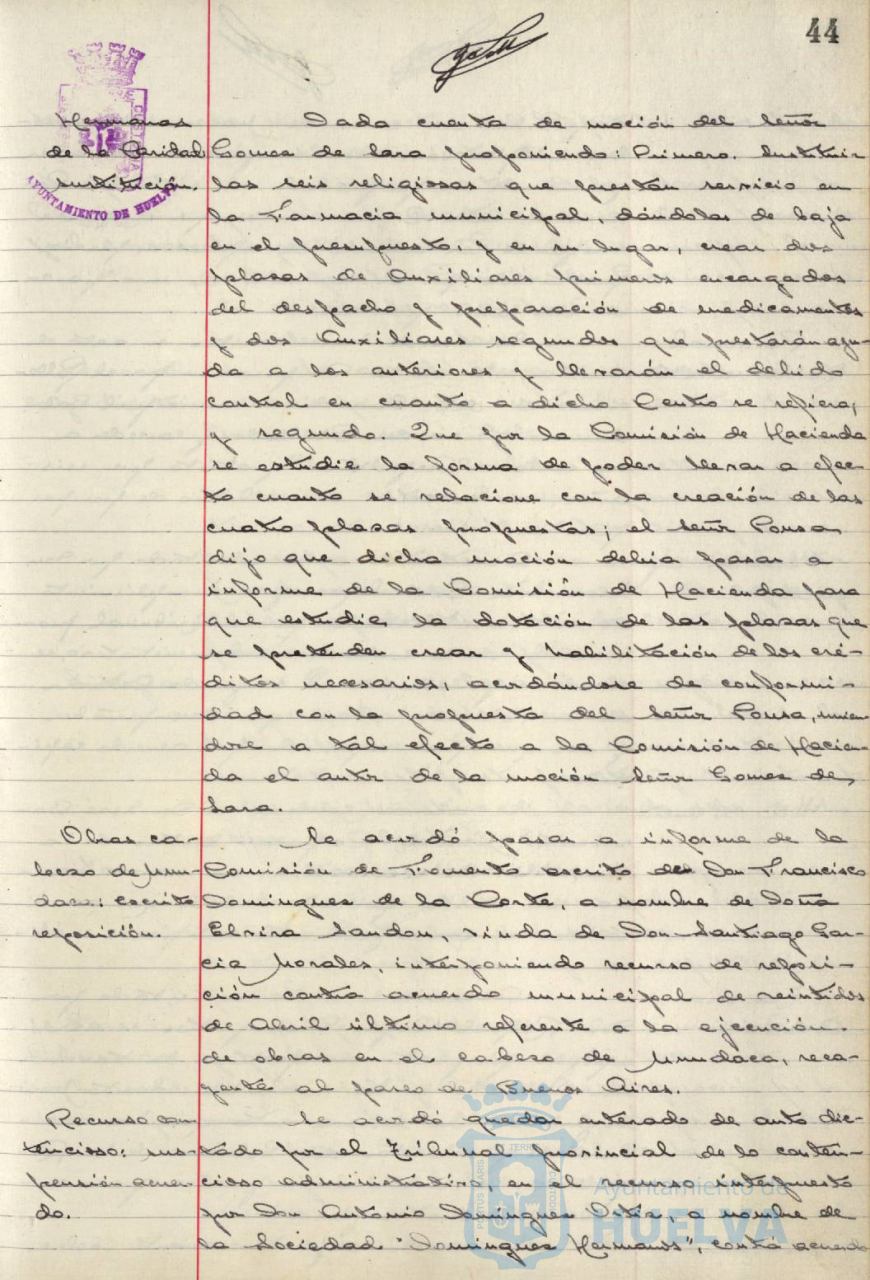 44
Hermanas
de la Caridad
sustitución.
AYUNTAMIENTO DE HUELVA
Dada cuenta de moción del Señor
Gomez de Lara proponiendo: Primero. Sustituir
las seis religiosas que prestan servicio en
la Farmacia municipal, dándolas de baja
en el presupuesto, y en su lugar, crear dos
plazas de Auxiliares primeros encargados
del despacho y preparación de medicamentos
y dos Auxiliares segundos que prestarán ayu-
da a los anteriores y llevarán el debido
control en cuanto a dicho Centro se refiera,
y segundo. Que por la Comisión de Hacienda
se estudie la forma de poder llevar a efec-
to cuanto se relacione con la creación de las
cuatro plazas propuestas; el Señor Ponsa
dijo que dicha moción debia pasar a
informe de la Comisión de Hacienda para
que estudie la dotación de las plazas que
se pretenden crear y habilitación de los cré-
ditos necesarios, acordándose de conformi-
dad con la propuesta del Señor Ponsa, unien-
dose a tal efecto a la Comisión de Hacien-
da el autor de la moción Señor Gomez de
Lara.
Obras ca-
bezo de Mun-
daca: escrito
reposición.
Se acordó pasar a informe de la
Comisión de Fomento escrito de Don Francisco
Dominguez de la Corte, a nombre de Doña
Elvira Sandon, viuda de Don Santiago Gar-
cia Morales, interponiendo recurso de reposi-
ción contra acuerdo municipal de veintidos
de Abril último referente a la ejecución
de obras en el cabezo de Mundaca, reca-
yente al paseo de Buenos Aires.
Recurso con-
tencioso: sus-
pensión acuer-
do.
Se acordó quedar enterado de auto dic-
tado por el Tribunal provincial de lo conten-
cioso administrativo, en el recurso interpuesto
por Don Antonio Dominguez Ortiz, a nombre de
la Sociedad "Dominguez Hermanos", contra acuerdo
Ayuntamiento de
HUELVA